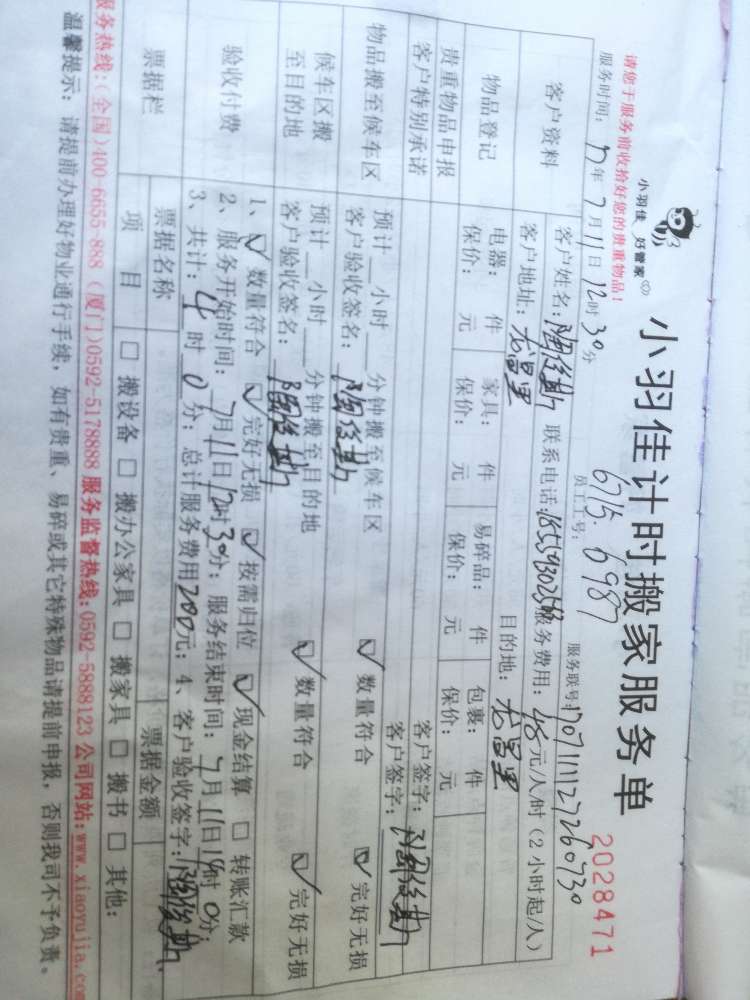 小羽佳 好管家
小羽佳计时搬家服务单
2028471
请您于服务前收拾好您的贵重物品!
6715. 6987
服务时间: 17年 7月 11日 12时 30分 员工工号: 服务联号:
客户资料
客户姓名: 联系电话: 服务费用: 元/人/时(2小时起/人)
客户地址: 龙昌里 目的地: 龙昌里
物品登记
电器: 件 家具: 件 易碎品: 件 包裹: 件
保价: 元 保价: 元 保价: 元 保价: 元
贵重物品申报 客户签字:
客户特别承诺 客户签字:
物品搬至候车区
预计__小时__分钟搬至候车区 ☑ 数量符合 ☑ 完好无损
客户验收签名:
候车区搬至目的地
预计__小时__分钟搬至目的地 ☑ 数量符合 ☑ 完好无损
客户验收签名:
验收付费
1、☑ 数量符合 ☑ 完好无损 ☑ 按需归位 ☑ 现金结算 □ 转账汇款
2、服务开始时间: 7月11日12时30分; 服务结束时间: 7月11日14时0分
3、共计: 4时0分; 总计服务费用200元; 4、客户验收签字:
票据栏
票据名称 票据金额
项目 □ 搬设备 □ 搬办公家具 □ 搬家具 □ 搬书 □ 其他:
服务热线:(全国)400-6655-888 (厦门)0592-5178888 服务监督热线:0592-5888123 公司网站:www.xiaoyujia.co
温馨提示: 请提前办理好物业通行手续, 如有贵重、易碎或其它特殊物品请提前申报, 否则我司不予负责。